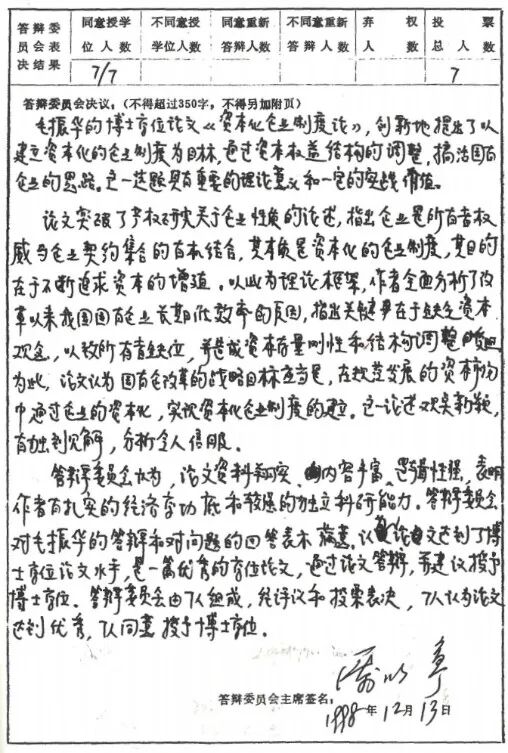 答辩委员会表决结果 同意授学位人数 不同意授学位人数 同意重新答辩人数 不同意重新答辩人数 弃权人数 投票总人数
7/7 7
答辩委员会决议:(不得超过350字,不得另加附页)
毛振华的博士学位论文《资本化企业制度论》,创新地提出了以
建立资本化的企业制度为目标,通过资本权益结构的调整,搞活国有
企业的思路。这一选题具有重要的理论意义和一定的实践价值。
论文突破了产权研究关于企业性质的论述,指出企业是所有者权
威与企业契约集合的有机结合,其本质是资本化的企业制度,其目的
在于不断追求资本的增殖。以此为理论框架,作者全面分析了改
革以来我国国有企业长期低效率的原因,指出关键是在于缺乏资本
观念,以致所有者缺位,并造成资本存量刚性和结构调整
为此,论文认为国有企改革的战略目标应当是,在规范发展的资本市场
中通过企业的资本化,实现资本化企业制度的建立。这一论述观点新颖,
有独到见解,分析令人信服。
答辩委员会认为,论文资料翔实,内容丰富,逻辑性强,表明
作者有扎实的经济学功底和较强的独立科研能力。答辩委员会
对毛振华的答辩和对问题的回答表示满意,认为论文达到了博
士学位论文水平,是一篇优秀的学位论文,通过论文答辩,并建议授予
博士学位。答辩委员会由7人组成,经评议和投票表决,7人认为论文
达到优秀,7人同意授予博士学位。
答辩委员会主席签名:
1998年12月13日